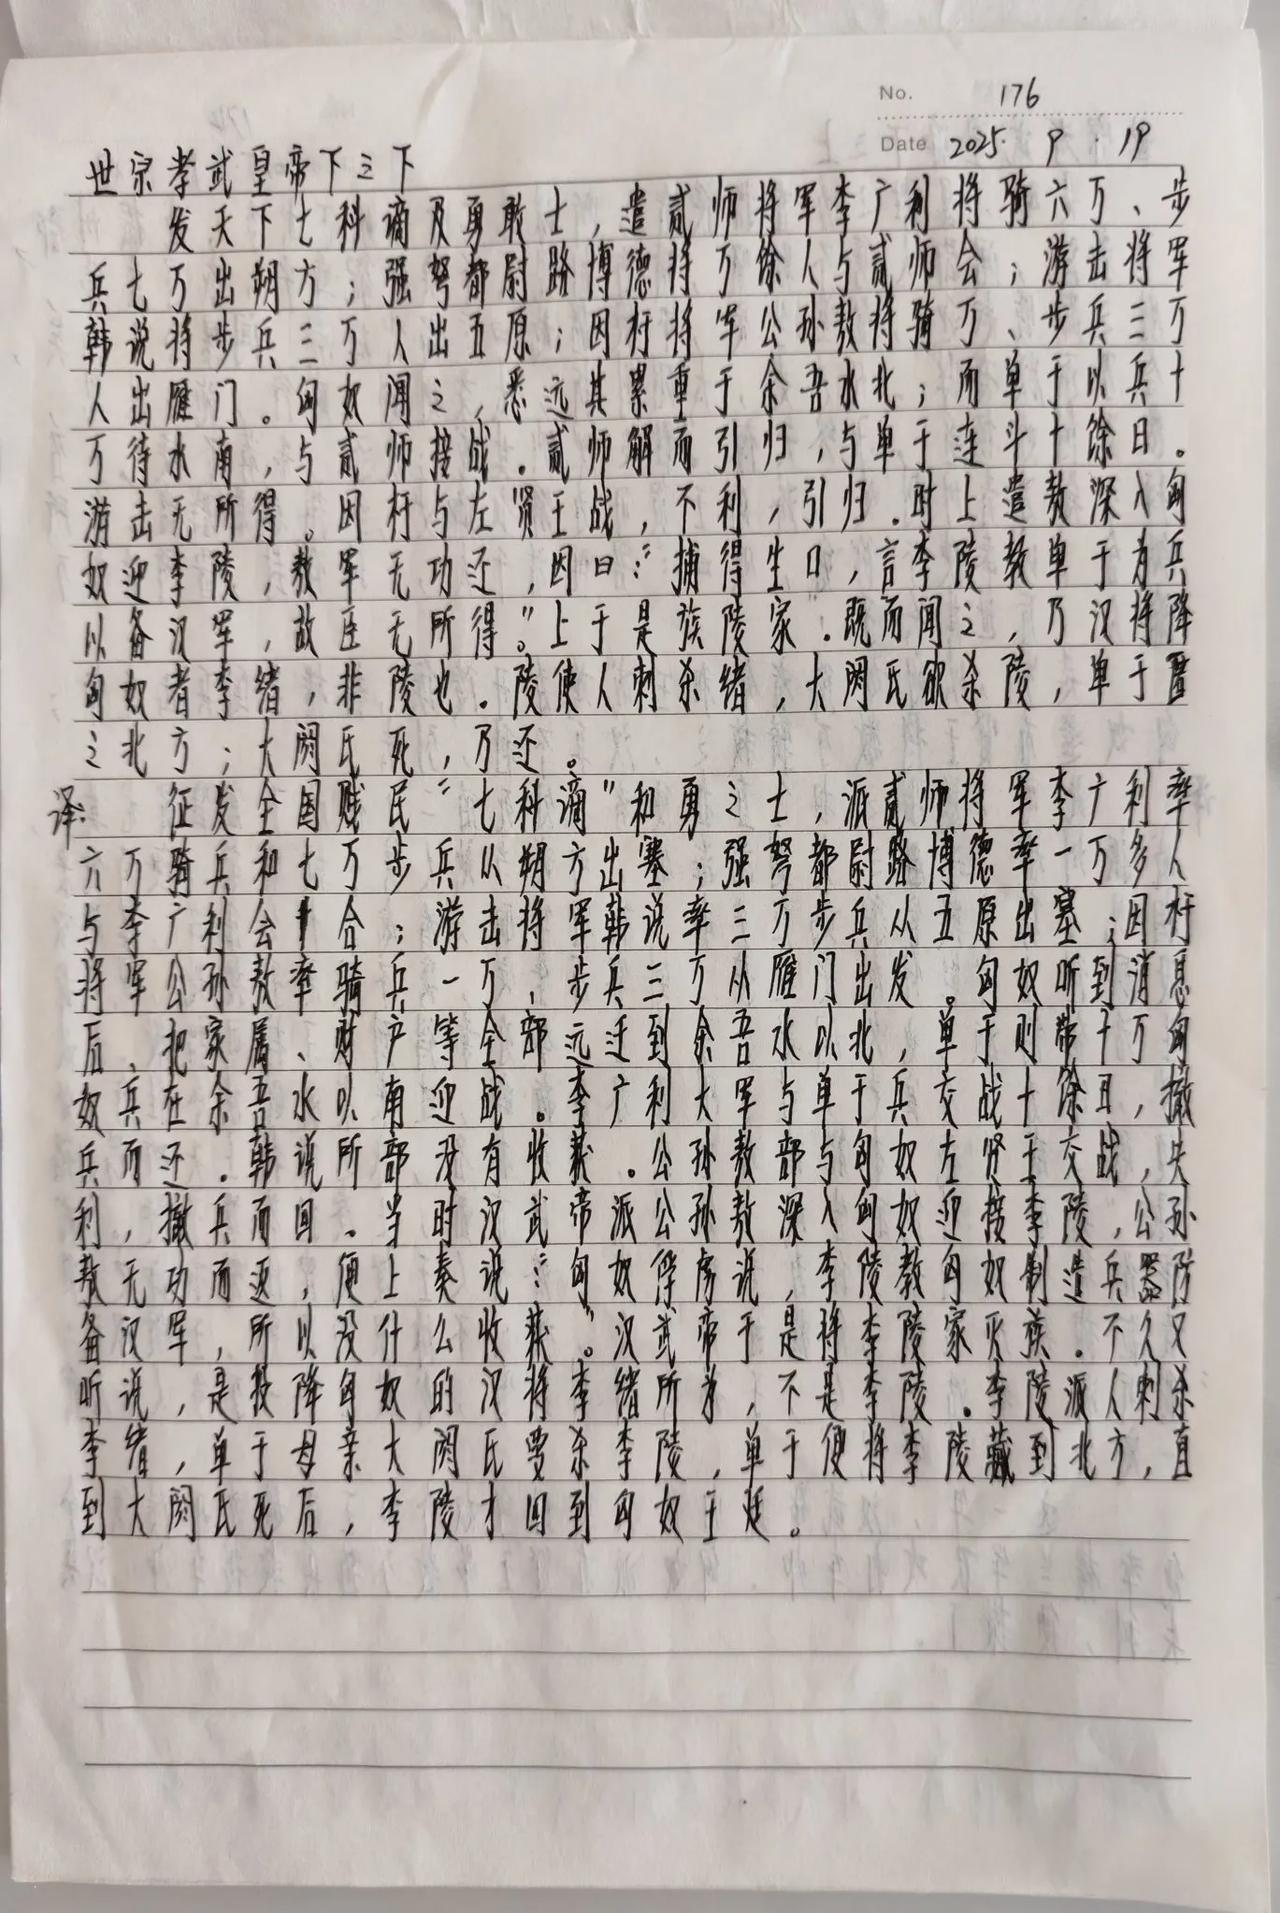 No. 176
Date 2025. 9. 19
世宗孝武皇帝下之下
发天下七科谪及勇敢士，遣贰师将军李广利将骑六万、步
兵七万出朔方；强弩都尉路博德将万余人与贰师会；游击将军
韩说将步兵三万人出五原；因杅将军公孙敖将骑万、步兵三万
人出雁门。匈奴闻之，悉远其累重于余吾水北；而单于以兵十
万待水南，与贰师接战。贰师解而引归，与单于连斗十馀日。
游击无所得。因杅与左贤王战，不利，引归。时上遣敖深入匈
奴迎李陵，敖军无功还，因曰：“捕得生口，言李陵教单于为兵
以备汉军，故臣无所得。”上于是族陵家。既而闻之，乃汉将降
匈奴者李绪，非陵也。陵使人刺杀绪，大阏氏欲杀陵，单于匿
之北方；大阏氏死，乃还。
译：征发全国贱民“七科谪”和勇之士，派贰师将军李广利率
六万骑兵和七万步兵从朔方出塞；强弩都尉路博德率一万多人
与李广利会合；游击将军韩说率三万步兵从五原出塞；因杅
将军公孙敖率骑兵一万、步兵三万从雁门出发。匈奴听到消息
后，把家属、财产等全部远迁到余吾水以北，单于则带十万匈
奴兵在余吾水以南迎战。李广利大军与单于兵交战十馀日，撤
兵而还。韩说所部没有收获。公孙敖部与匈奴左贤王交战，失
利，撤兵而回。当时汉武帝派公孙敖深入匈奴迎接李陵，公孙
敖无功而返，便上奏说：“匈奴俘虏说，李陵教匈奴制造兵器防
备汉军，所以没什么收获。”汉武帝于是将李陵家灭族。不久又
听说，是投降匈奴的汉将李绪所为，不是李陵。李陵派人刺杀
李绪，单于母亲大阏氏要杀李陵，单于便将李陵藏到北方，直
到大阏氏死后，李陵才回到匈奴王廷。